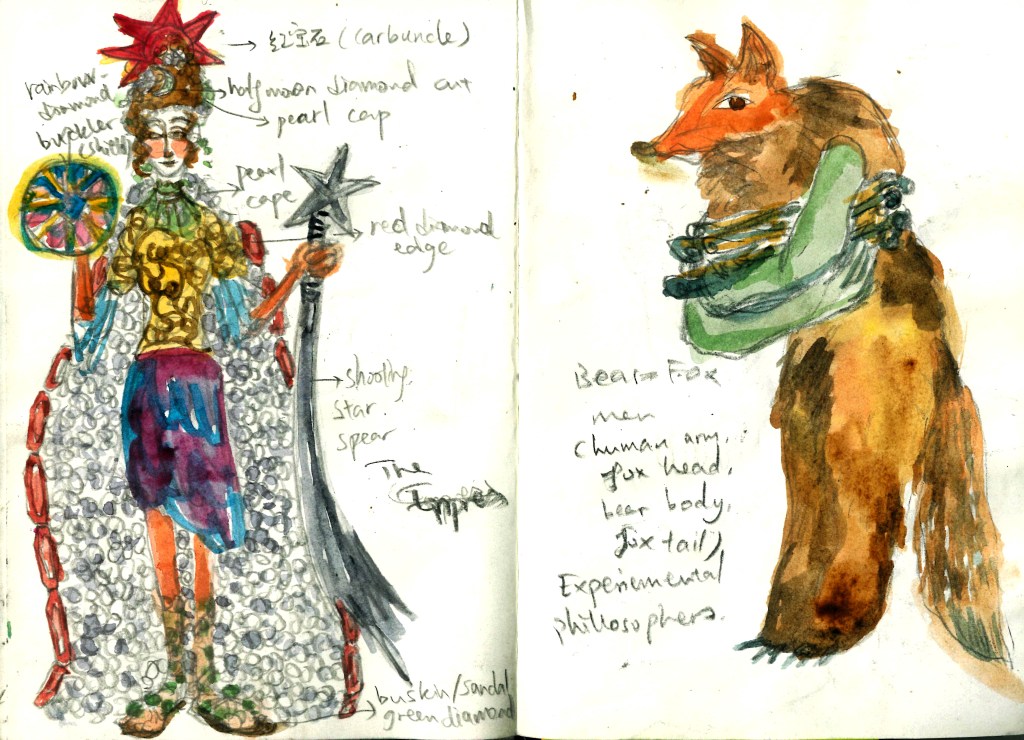 红宝石 (carbuncle)
rainbow-
diamond
buckler
(shield)
half moon diamond cut
pearl cap
pearl
cape
red diamond
edge
shooting
star
spear
The
Empress
buskin/sandal
green diamond
Bear-Fox
men
(human arm,
fox head,
bear body,
fox tail),
Experiemental
phillosophers.